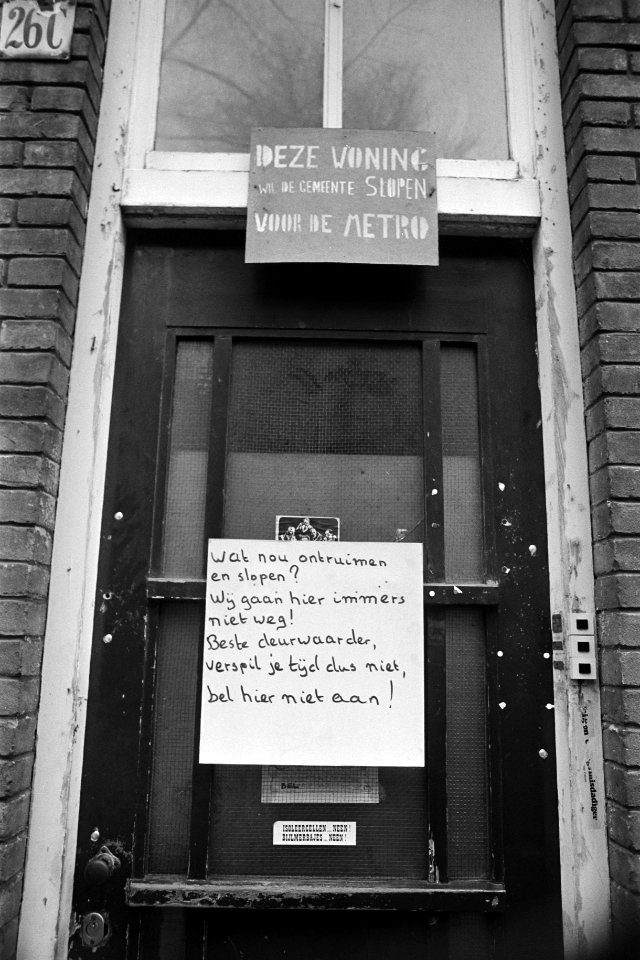 26C
DEZE WONING
WIL DE GEMEENTE SLOPEN
VOOR DE METRO
Wat nou ontruimen
en slopen?
Wij gaan hier immers
niet weg!
Beste deurwaarder,
verspil je tijd dus niet,
bel hier niet aan!
BEL
ISOLEERCELLEN... NEEN!
BIJLMERBAJES... NEEN!
misdadiger